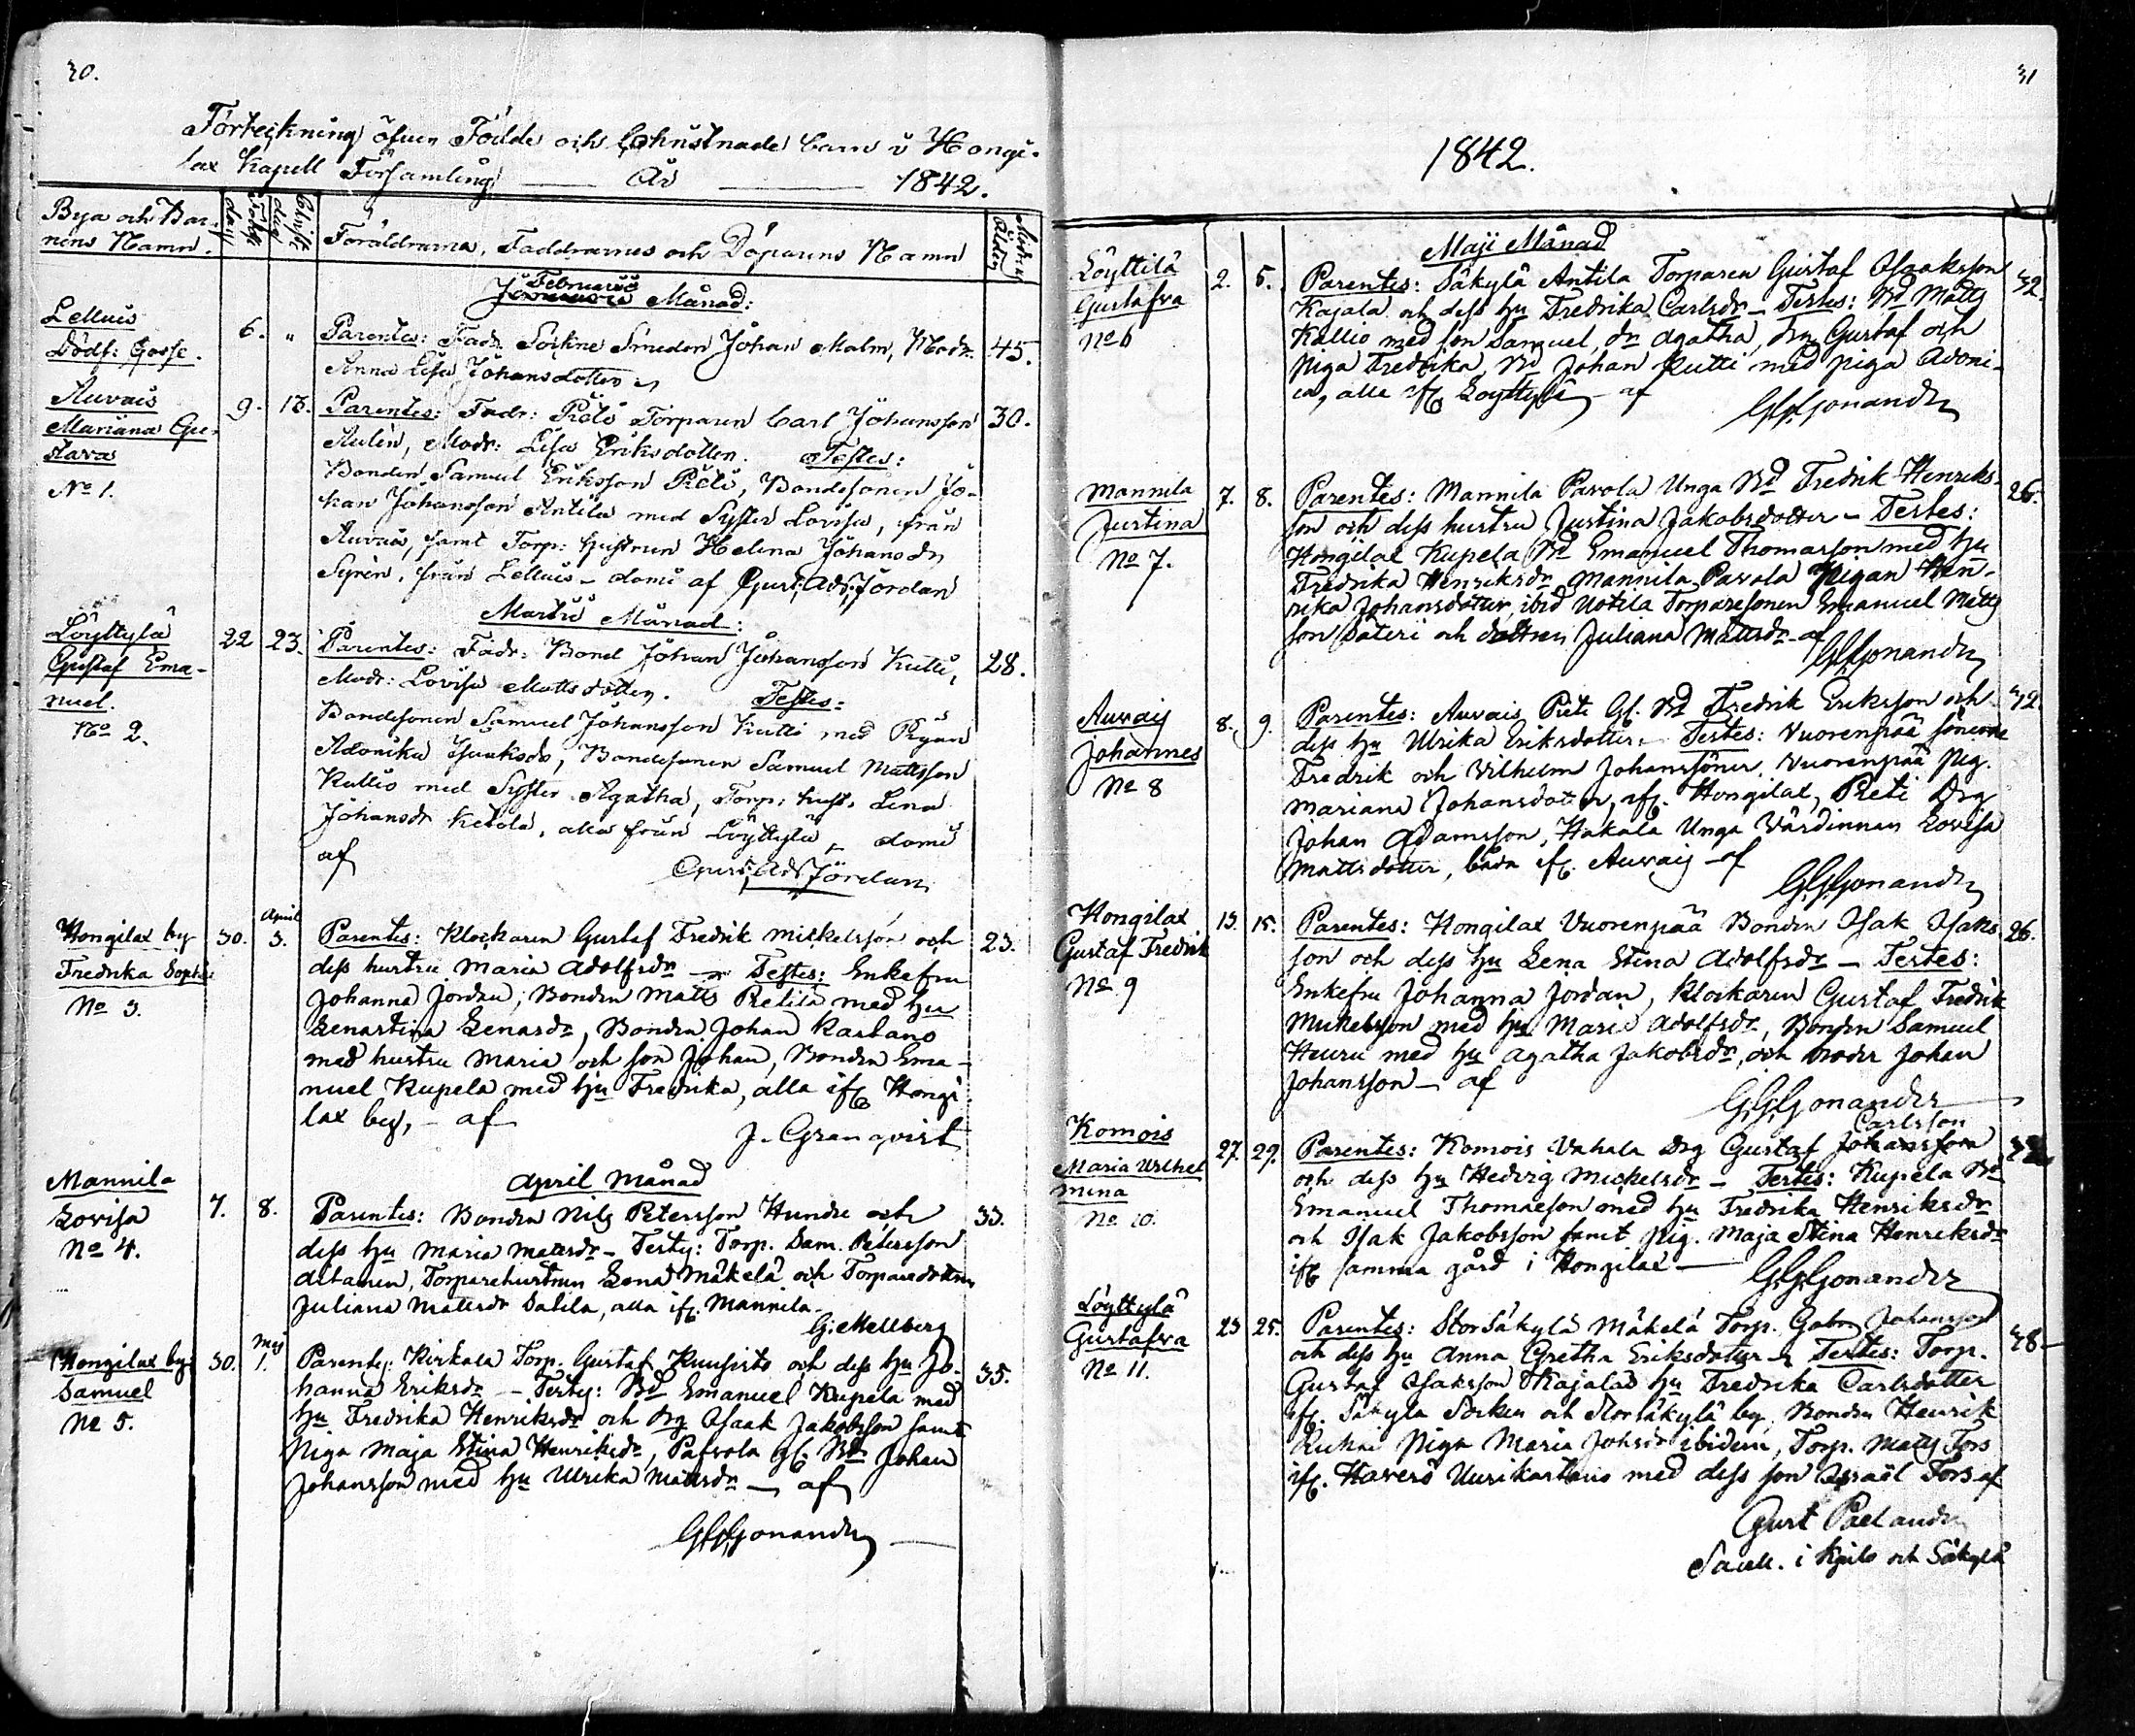 30.
Förteckning öfver Födde och Christnade barn i Hongi-
lax Kapell Församling År 1842.
Bya och Bar-
nens Namn.
Född
dag
Christn.
dag
Föräldrarna, Faddrarnes och Döparens Namn
Modrens
ålder
Januarii Februarii Månad:
Lelluis
Dödf: Gosse.
6. " Parentes: Fadr. Sockne Smeden Johan Malm, Modr. 45.
Anna Lisa Johansdotter
Auvais
Mariana Gu-
stava
No 1.
9. 13. Parentes: Fadr: Torparen Carl Johansson 30.
Aulin, Modr: Lisa Eriksdotter. Testes:
Bonden Samuel Eriksson Bondesonen Jo-
han Johansson Antila med Syster Lovisa, från
Auvais, samt Torp: hustrun Helena Johansdr
Syrén, från Lelluis - domi af Gust: Ad: Jordan
Martii Månad:
Löyttylä
Gustaf Ema-
nuel.
No 2.
22 23. Parentes: Fadr: Bond Johan Johansson Kutti, 28.
Modr: Lovisa Mattsdotter. Testes:
Bondesonen Samuel Johansson Kutti med Pigan
Adonika Isaksdr, Bondesonen Samuel Mattsson
Kallio med Syster Agatha, Torp: hust. Lena
Johansdr Ketola, alla från Löyttylä - domi
af
Gust: Ad: Jordan
Hongilax by
Fredrika Sophia
No 3.
30. April 3. Parentes: Klockaren Gustaf Fredrik Mickelsson och 23.
dess hustru Maria Adolfsdr - Testes: Enkefru
Johanna Jordan, Bonden Matts Pietilä med hu
Lenastina Lenasdr, Bonden Johan Kartano
med hustru Maria och son Johan, Bonden Ema-
nuel Kupela med hu Fredrika, alla ifr Hongi
lax by, - af
J. Granqvist
April Månad
Mannila
Lovisa
No 4.
7. 8. Parentes: Bonden Nils Petersson Hundu och 33.
dess hu Maria Mattsdr - Testes: Torp. Sam. Petersson
Torparehustrun Lena Mäkelä och Torparedottren
Juliana Mattsdr alla ifr. Mannila.
G: Mellberg
Hongilax by
Samuel
No 5.
30. Maj 1. Parentes: Kirkala Torp. Gustaf Kuusisto och dess hu Jo- 35.
hanna Eriksdr - Testes: Bd Emanuel Kupela med
hu Fredrika Henriksdr och drg Isaak Jakobsson samt
Piga Maja Stina Henriksdr, Pafvola gl Bd Johan
Johansson med hu Ulrika Mattsdr - af
G.G.Gonander
31
1842.
Maji Månad
Löyttilä
Gustafva
No 6
2. 5. Parentes: Säkylä Antila Torparen Gustaf Isaaksson 32.
Kajala och dess hu Fredrika Carlsdr - Testes: Bd Matts
Kallio med son Samuel, dr Agatha, drg Gustaf och
Piga Fredrika, Bd Johan Kutti med piga Adoni-
ca, alla ifr Löyttylä - af
G.G.Gonander
Mannila
Justina
No 7.
7. 8. Parentes: Mannila Pavola Unga Bd Fredrik Henriks- 26.
son och dess hustru Justina Jakobsdotter - Testes:
Hongilax Kupela Bd Emanuel Thomasson med hu
Fredrika Henriksdr Mannila Pavola Pigan Hen-
rika Johansdotter, ibid Uotila Torparesonen Emanuel Matts
son Säteri och dottren Juliana Mattsdr - af
G.G.Gonander
Auvais
Johannes
No 8
8. 9. Parentes: Auvais Preti Gl. Bd Fredrik Eriksson och 42.
dess hu Ulrika Eriksdotter - Testes: Vuorenpää sönerne
Fredrik och Vilhelm Johanssöner, Vuorenpää Pig.
Mariana Johansdotter, ifr. Hongilax, Preti Drg
Johan Adamsson, Hakala Unga Värdinnan Lovisa
Mattsdotter, båda ifr. Auvais - af
G.G.Gonander
Hongilax
Gustaf Fredrik
No 9
13. 15. Parentes: Hongilax Vuorenpää Bonden Isak Isaks- 26.
son och dess hu Lena Stina Adolfsdr - Testes:
Enkefru Johanna Jordan, Klockaren Gustaf Fredrik
Mickelsson med hu Maria Adolfsdr, Bonden Samuel
Heuru med hu Agatha Jakobsdr, och broder Johan
Johansson - af
G.G.Gonander
Komois
Maria Wilhel
mina
No 10.
27. 29. Parentes: Komois Vahala Drg Gustaf Johansson Carlsson
och dess hu Hedvig Mickelsdr - Testes: Kupela Bd
Emanuel Thomasson med hu Fredrika Henriksdr
och Isak Jakobsson samt Pig. Maja Stina Henriksdr
ifr samma gård i Hongilax -
G.G.Gonander
Löyttylä
Gustafva
No 11.
23 25. Parentes: Stor Säkylä Mäkelä Torp. Gabr. Johansson 38
och dess hu Anna Gretha Eriksdotter - Testes: Torp.
Gustaf Isaksson Kajalas hu Fredrika Carlsdotter
ifr. Säkylä Socken och Stor Säkylä by, Bonden Henrik
Piga Maria Johsdr ibidem, Torp. Matts Fors
ifr. Haverö Uusikartano med dess son Israël Fors af
Gust Pælander
Sacell. i Kjulo och Säkylä